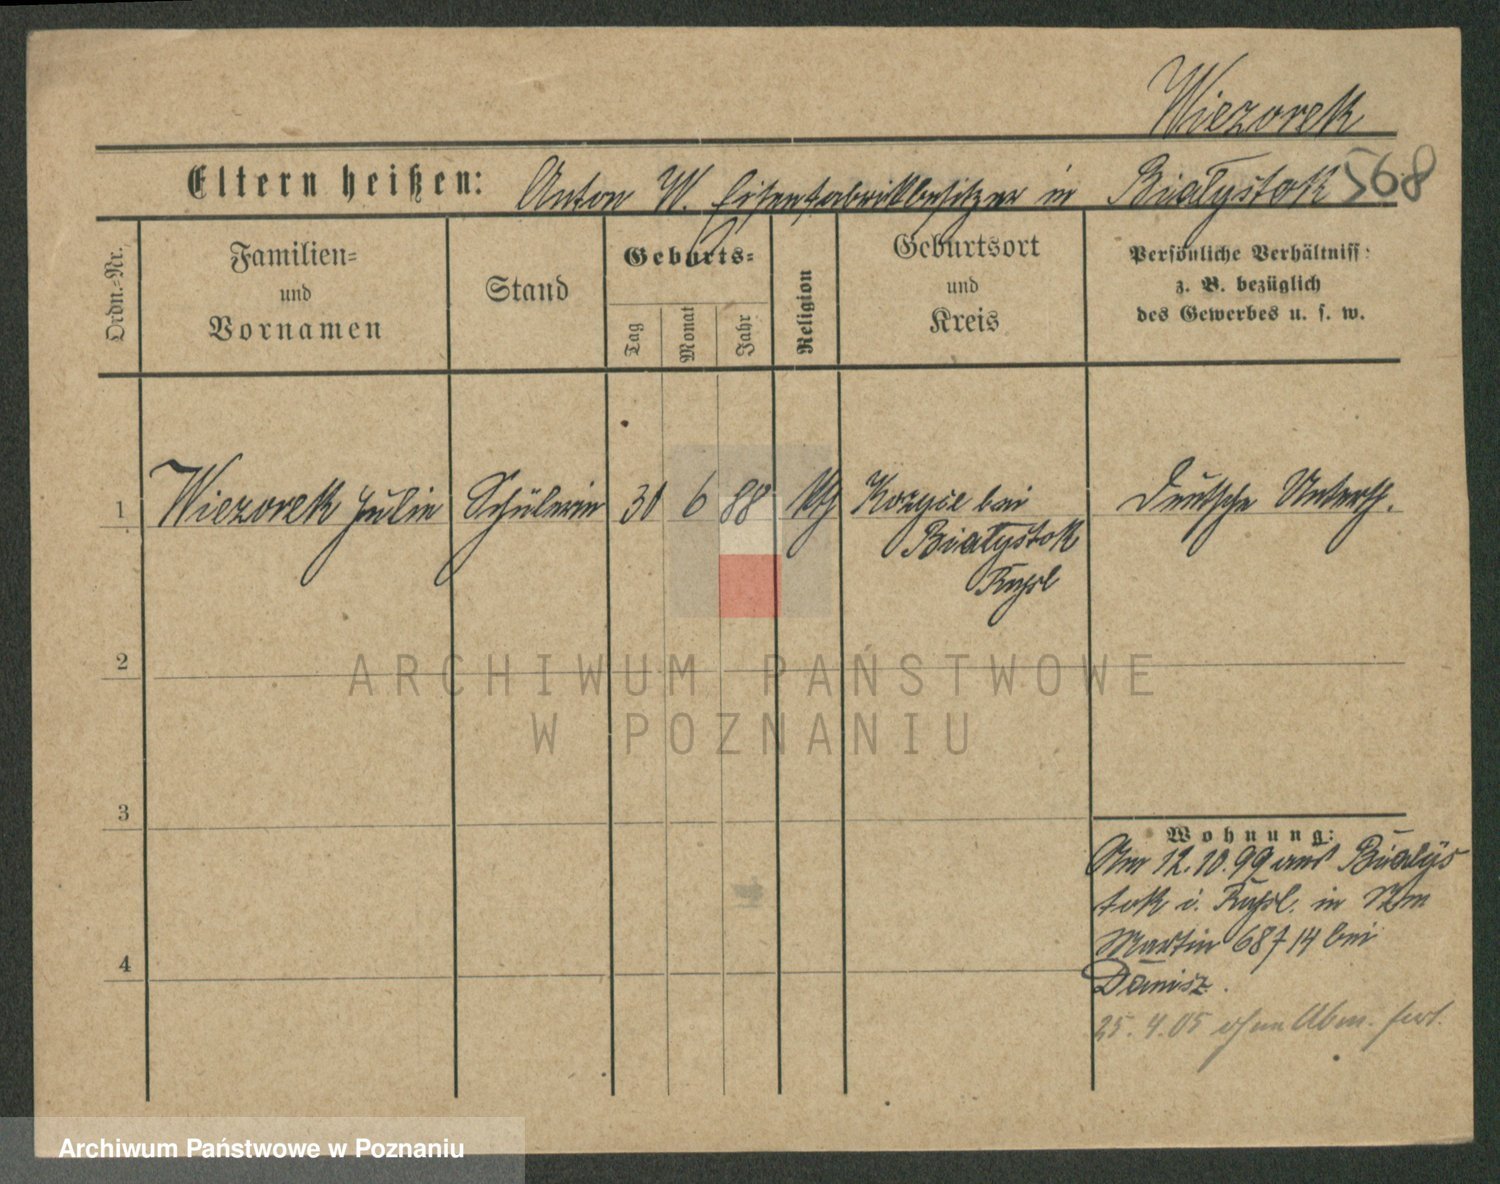 Wiezorek
568
Eltern heißen: Anton W. Eisenfabrikbesitzer in Białystok
Ordn.-Nr.
Familien-
und
Vornamen
Stand
Geburts-
Tag
Monat
Jahr
Religion
Geburtsort
und
Kreis
Persönliche Verhältniss
z. B. bezüglich
des Gewerbes u. s. w.
1 Wiezorek Julie Schülerin 30 6 88 Kozyce bei Deutsche Unterth.
Białystok
Rußl
2
3
4
Wohnung:
Am 12.10.99 aus Bialÿs
tok i. Rußl. in
Martin 68 14 bei
Danisz.
25. 4. 05 ohne Abm. fort.
ARCHIWUM PAŃSTWOWE
W POZNANIU
Archiwum Państwowe w Poznaniu